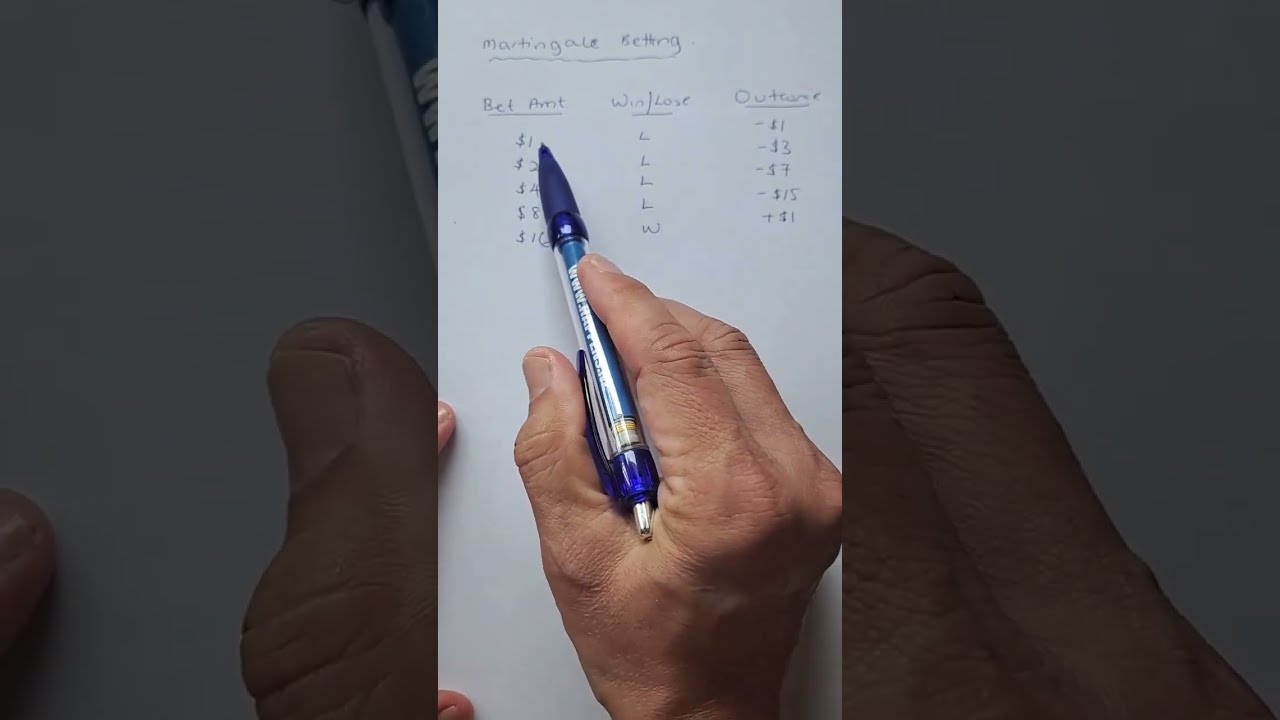 Martingale Betting.
Bet Amt Win/Lose Outcome
$1 L -$1
$2 L -$3
$4 L -$7
$8 L -$15
$16 W +$1